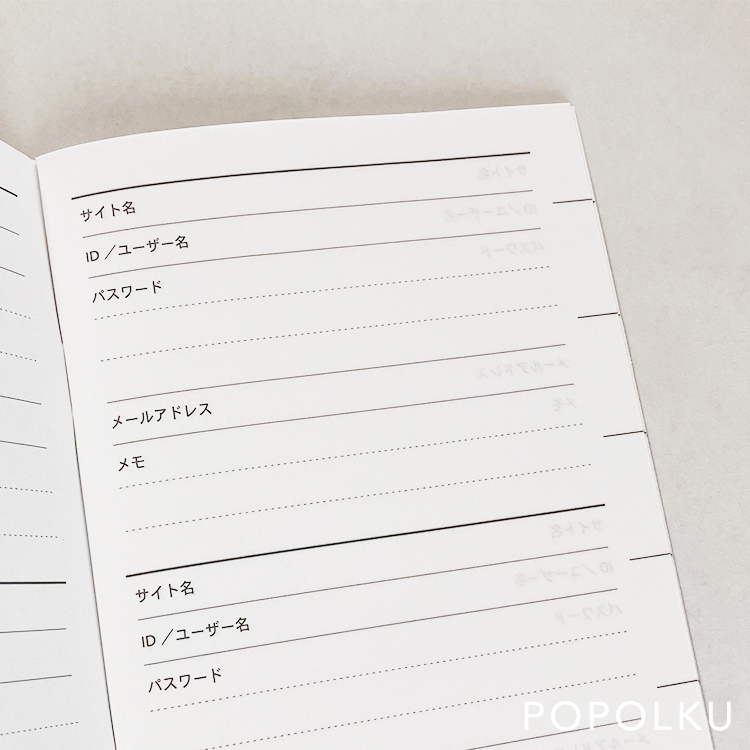 サイト名
ID／ユーザー名
パスワード
メールアドレス
メモ
サイト名
ID／ユーザー名
パスワード
POPOLKU